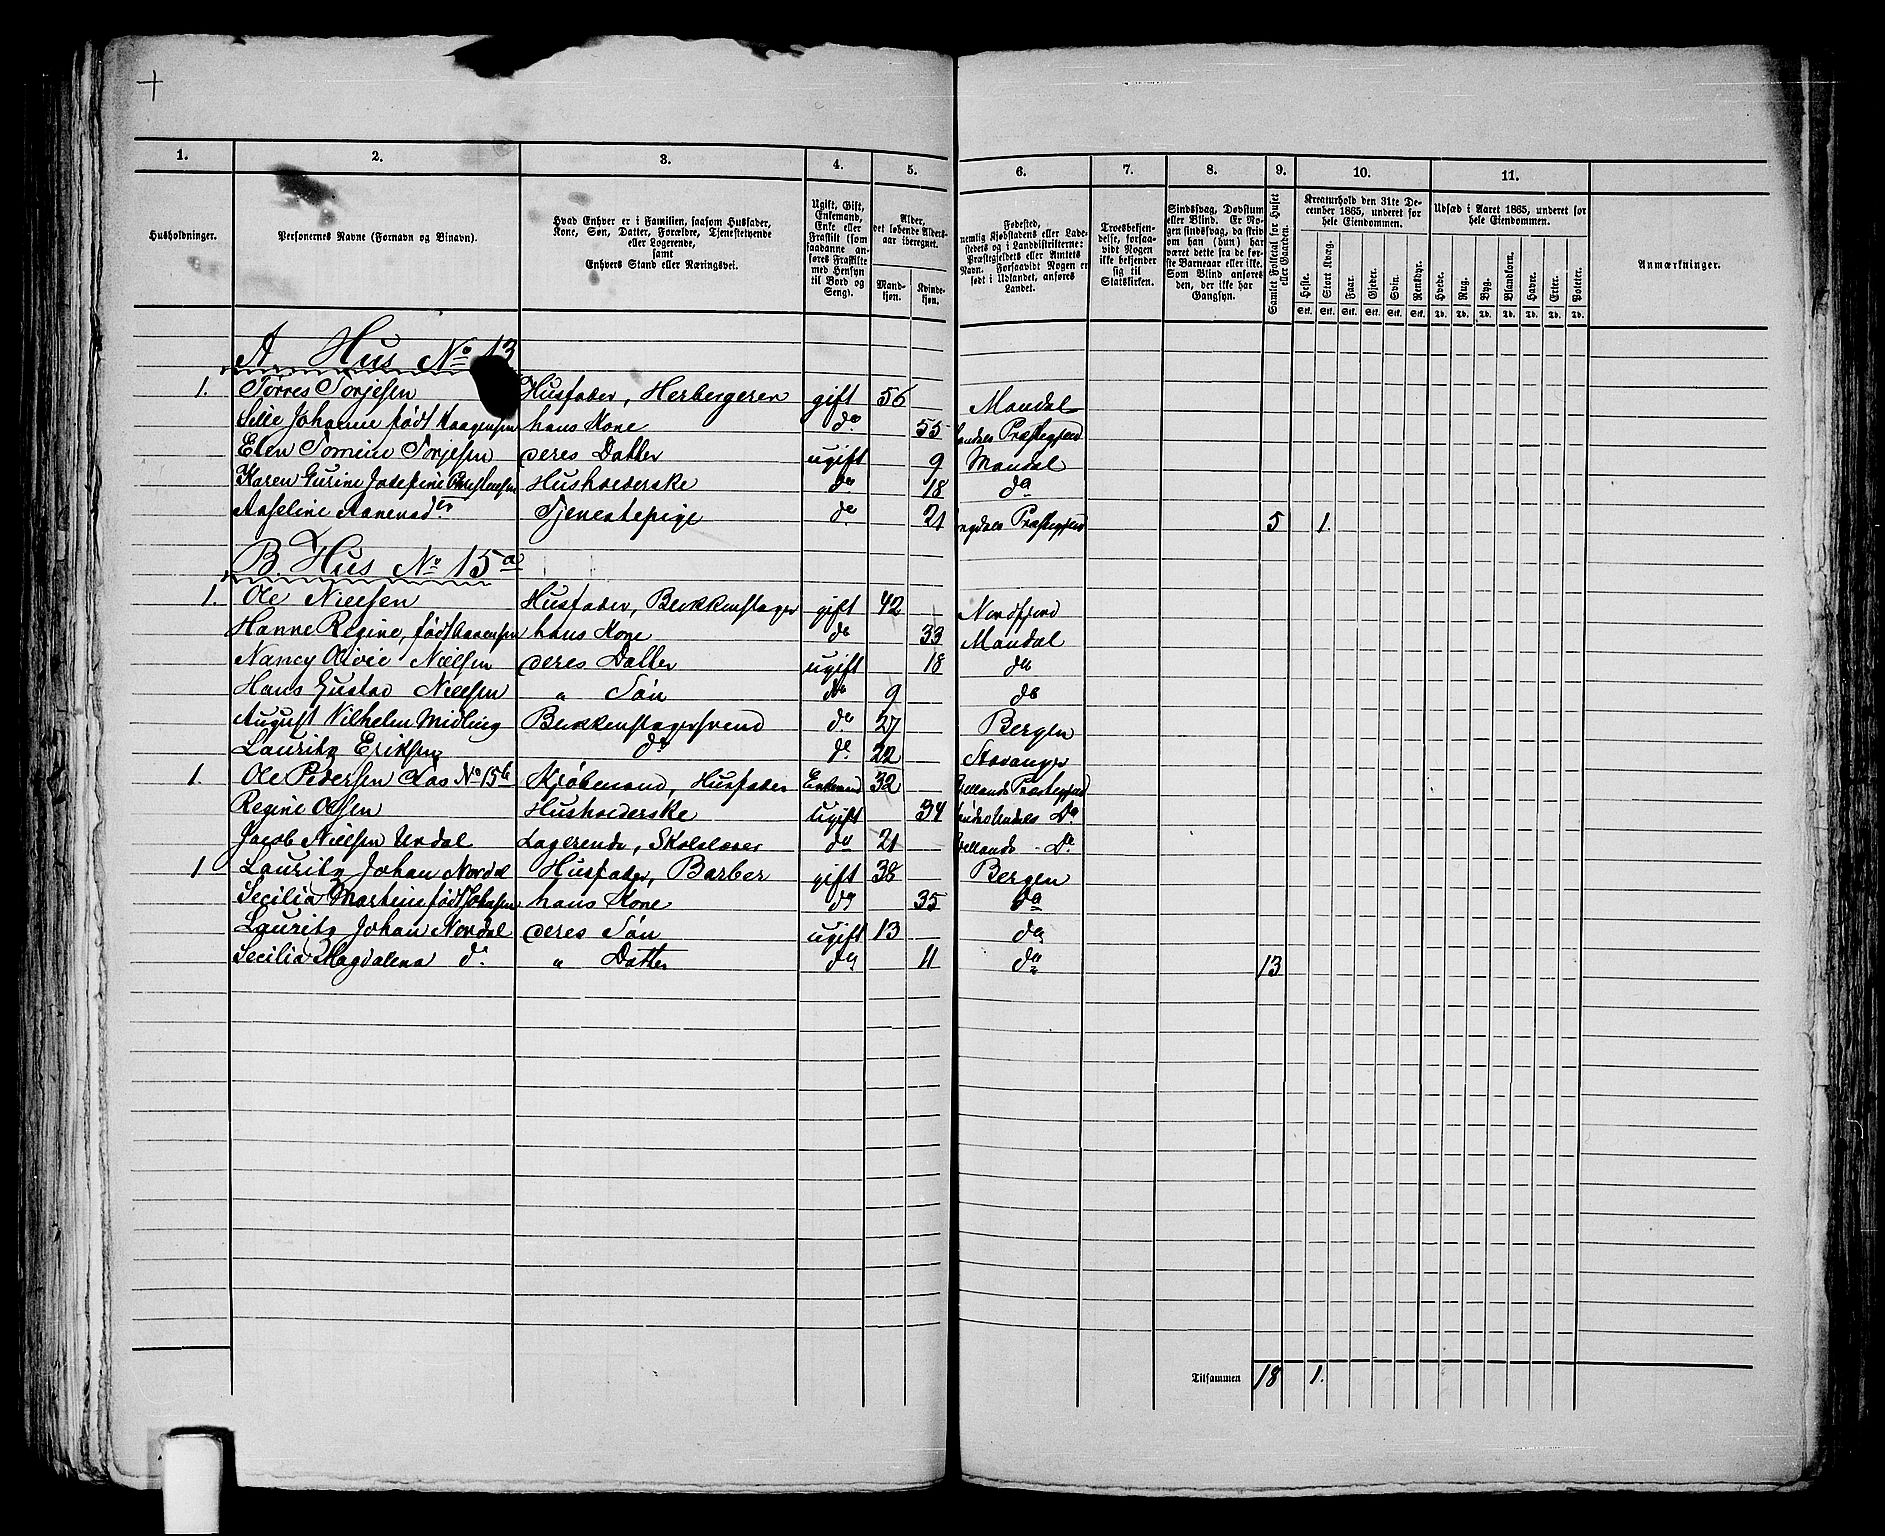 1. 2. 3. 4. 5. 6. 7. 8. 9. 10. 11.
Husholdninger.
Personernes Navne (Fornavn og Binavn).
Hvad Enhver er i Familien, saasom Husfader,
Kone, Søn, Datter, Forældre, Tjenestetyende
eller Logerende,
samt
Enhvers Stand eller Næringsvei.
Ugift, Gift,
Enkemand,
Enke eller
Fraskilt (som
saadanne an-
føres Fraskilte
med Hensyn
til Bord og
Seng).
Alder,
det løbende Alders-
aar iberegnet.
Mand-
kjøn.
Kvinde-
kjøn.
Fødested,
nemlig Kjøbstadens eller Lade-
stedets og i Landdistrikterne:
Præstegjeldets eller Amtets
Navn. Forsaavidt Nogen er
født i Udlandet, anføres
Landet.
Troesbekjen-
delse, forsaa-
vidt Nogen
ikke bekjender
sig til
Statskirken.
Sindssvag, Døvstum
eller Blind. Er No-
gen sindssvag, da skriv
om han (hun) har
været dette fra de før-
ste Barneaar eller ikke.
Som Blind anføres
den, der ikke har
Gangsyn.
Samlet Folketal for Huset
eller Gaarden.
Kreaturhold den 31te De-
cember 1865, underet for
hele Eiendommen.
Heste. Stort Kvæg. Faar. Gjeder. Svin. Rensdyr.
Stk. Stk. Stk. Stk. Stk. Stk.
Udsæd i Aaret 1865, underet for
hele Eiendommen.
Hvede. Rug. Byg. Blandkorn. Havre. Erter. Poteter.
Td. Td. Td. Td. Td. Td. Td.
Anmærkninger.
A Hus No 13
1. Torres Torjesen Husfader, Herbergerer gift 56 Mandal
Silie Johanne født Haagensen hans Kone do 55 Præstegjeld
Elen Tomine Torjesen deres Datter ugift 9 Mandal
Karen Gurine Josefine Christensen Husholderske do 18 do
Aaseline Aanensdtr Tjenestepige do 21 Præstegjeld 5 1.
B. Hus No 15a
1. Ole Nielsen Husfader, Blikkenslager gift 42 Nordfjord
Hanne Regine, født Aanensen hans Kone do 33 Mandal
Nancy Olivie Nielsen deres Datter ugift 18 do
Hans Gustav Nielsen " Søn do 9 do
August Vilhelm Midling Blikkenslagersvend do 27 Bergen
Lauritz Eriksen do do 22 Stavanger
1. Ole Pedersen Aas No 15b Kjøbmand, Husfader Enkemand 32 Præstegjeld
Regine Olsen Husholderske ugift 34 Do
Jacob Nielsen Undal Logerende, Skolelærer do 21 Do
1 Lauritz Johan Nordal Husfader, Barber gift 38 Bergen
Secilia Martine født Johnsen hans Kone do 35 do
Lauritz Johan Nordal deres Søn ugift 13 do
Secilia Magdalena do " Datter do 11 do 13
Tilsammen 18 1.